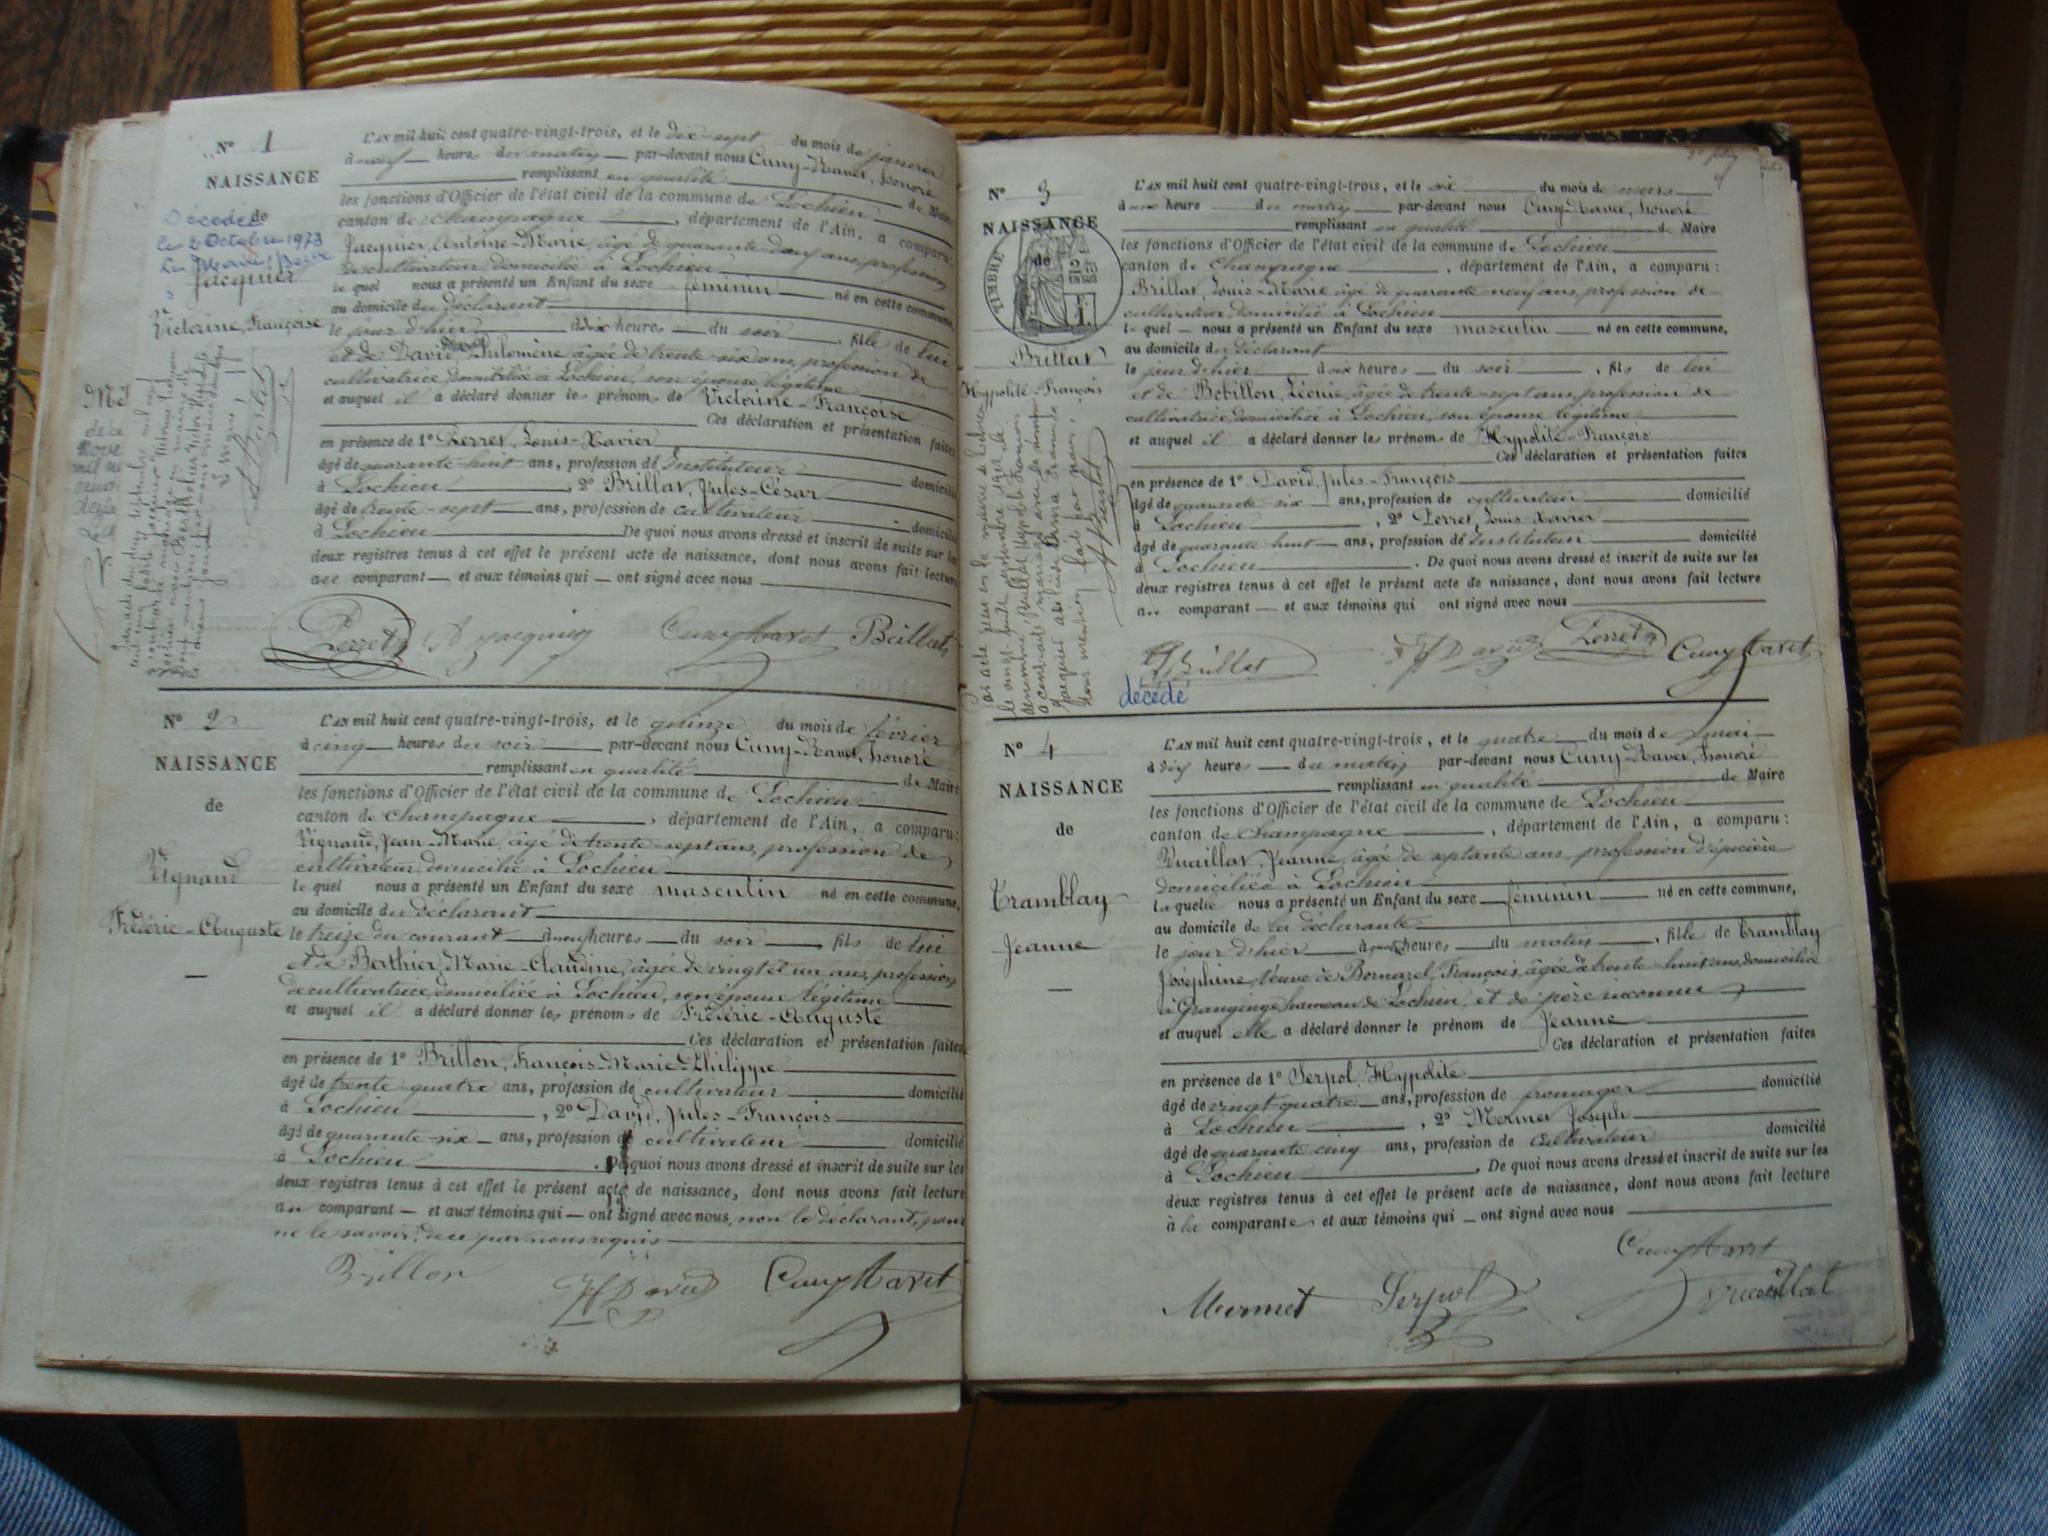 N° 1
NAISSANCE
de
Décédée
le 2 Octobre 1973
Jacquier
Victorine, Françoise
L'AN mil huit cent quatre-vingt-trois, et le dix-sept du mois de janvier
à neuf heures du matin par-devant nous Cuny-Ravet, Honoré
remplissant en qualité de Maire
les fonctions d'Officier de l'état civil de la commune de Lochieu
canton de Champagne, département de l'Ain, a comparu:
Jacquier, Antoine-Marie, âgé de quarante-deux ans, profession
de cultivateur domicilié à Lochieu
le quel nous a présenté un Enfant du sexe féminin né en cette commune,
au domicile du déclarant
le jour d'hier à dix heures du soir, fille de lui
et de David Philomène âgée de trente-six ans, profession de
cultivatrice, domiciliée à Lochieu, son épouse légitime
et auquel il a déclaré donner les prénoms de Victorine-Françoise
Ces déclaration et présentation faites
en présence de 1° Perret, Louis-Xavier
âgé de quarante-huit ans, profession d'Instituteur domicilié
à Lochieu, 2° Brillat, Jules-César
âgé de trente-sept ans, profession de cultivateur domicilié
à Lochieu De quoi nous avons dressé et inscrit de suite sur les
deux registres tenus à cet effet le présent acte de naissance, dont nous avons fait lecture
au comparant et aux témoins qui ont signé avec nous
Perret A Jacquier Cuny Ravet Brillat
N° 2
NAISSANCE
de
Vignaud
Frédéric-Auguste
L'AN mil huit cent quatre-vingt-trois, et le quinze du mois de février
à cinq heures du soir par-devant nous Cuny-Ravet, Honoré
remplissant en qualité de Maire
les fonctions d'Officier de l'état civil de la commune de Lochieu
canton de Champagne, département de l'Ain, a comparu:
Vignaud, Jean-Marie, âgé de trente-sept ans, profession de
cultivateur, domicilié à Lochieu
le quel nous a présenté un Enfant du sexe masculin né en cette commune,
au domicile du déclarant
le treize du courant à neuf heures du soir, fils de lui
et de Berthier, Marie-Claudine, âgée de vingt et un ans, profession
de cultivatrice, domiciliée à Lochieu, son épouse légitime
et auquel il a déclaré donner les prénoms de Frédéric-Auguste
Ces déclaration et présentation faites
en présence de 1° Brillon, François-Marie-Philippe
âgé de trente-quatre ans, profession de cultivateur domicilié
à Lochieu, 2° David, Jules-François
âgé de quarante-six ans, profession de cultivateur domicilié
à Lochieu. De quoi nous avons dressé et inscrit de suite sur les
deux registres tenus à cet effet le présent acte de naissance, dont nous avons fait lecture
au comparant et aux témoins qui ont signé avec nous, non le déclarant, pour
ne le savoir, de ce par nous requis
Brillon JF David Cuny Ravet
N° 3
NAISSANCE
de
TIMBRE
Brillat
Hypolite-François
L'AN mil huit cent quatre-vingt-trois, et le six du mois de mars
à une heure du matin par-devant nous Cuny-Ravet, Honoré
remplissant en qualité de Maire
les fonctions d'Officier de l'état civil de la commune de Lochieu
canton de Champagne, département de l'Ain, a comparu:
Brillat, Louis-Marie âgé de quarante neuf ans, profession de
cultivateur, domicilié à Lochieu
le quel nous a présenté un Enfant du sexe masculin né en cette commune,
au domicile du déclarant
le jour d'hier à six heures du soir, fils de lui
et de Bobillon, Léonie, âgée de trente-sept ans, profession de
cultivatrice, domiciliée à Lochieu, son épouse légitime
et auquel il a déclaré donner les prénoms de Hypolite-François
Ces déclaration et présentation faites
en présence de 1° David, Jules-François
âgé de quarante six ans, profession de cultivateur domicilié
à Lochieu, 2° Perret, Louis-Xavier
âgé de quarante huit ans, profession d'Instituteur domicilié
à Lochieu. De quoi nous avons dressé et inscrit de suite sur les
deux registres tenus à cet effet le présent acte de naissance, dont nous avons fait lecture
au comparant et aux témoins qui ont signé avec nous
Brillat JF David Perret Cuny Ravet
décédé
N° 4
NAISSANCE
de
Tramblay
Jeanne
L'AN mil huit cent quatre-vingt-trois, et le quatre du mois de mai
à dix heures du matin par-devant nous Cuny-Ravet, Honoré
remplissant en qualité de Maire
les fonctions d'Officier de l'état civil de la commune de Lochieu
canton de Champagne, département de l'Ain, a comparu:
Vuaillat, Jeanne, âgée de septante ans, profession d'épicière
domiciliée à Lochieu
laquelle nous a présenté un Enfant du sexe féminin né en cette commune,
au domicile de la déclarante
le jour d'hier à quatre heures du matin, fille de Tramblay
Joséphine, Veuve de Bornarel, François, âgée de trente huit ans, domiciliée
à Granginge hameau de Lochieu, et de père inconnu
et auquel elle a déclaré donner le prénom de Jeanne
Ces déclaration et présentation faites
en présence de 1° Serpol Hypolite
âgé de vingt-quatre ans, profession de fromager domicilié
à Lochieu, 2° Mermet Joseph
âgé de quarante cinq ans, profession de Cultivateur domicilié
à Lochieu. De quoi nous avons dressé et inscrit de suite sur les
deux registres tenus à cet effet le présent acte de naissance, dont nous avons fait lecture
à la comparante et aux témoins qui ont signé avec nous
Cuny Ravet
Mermet Serpol Vuaillat